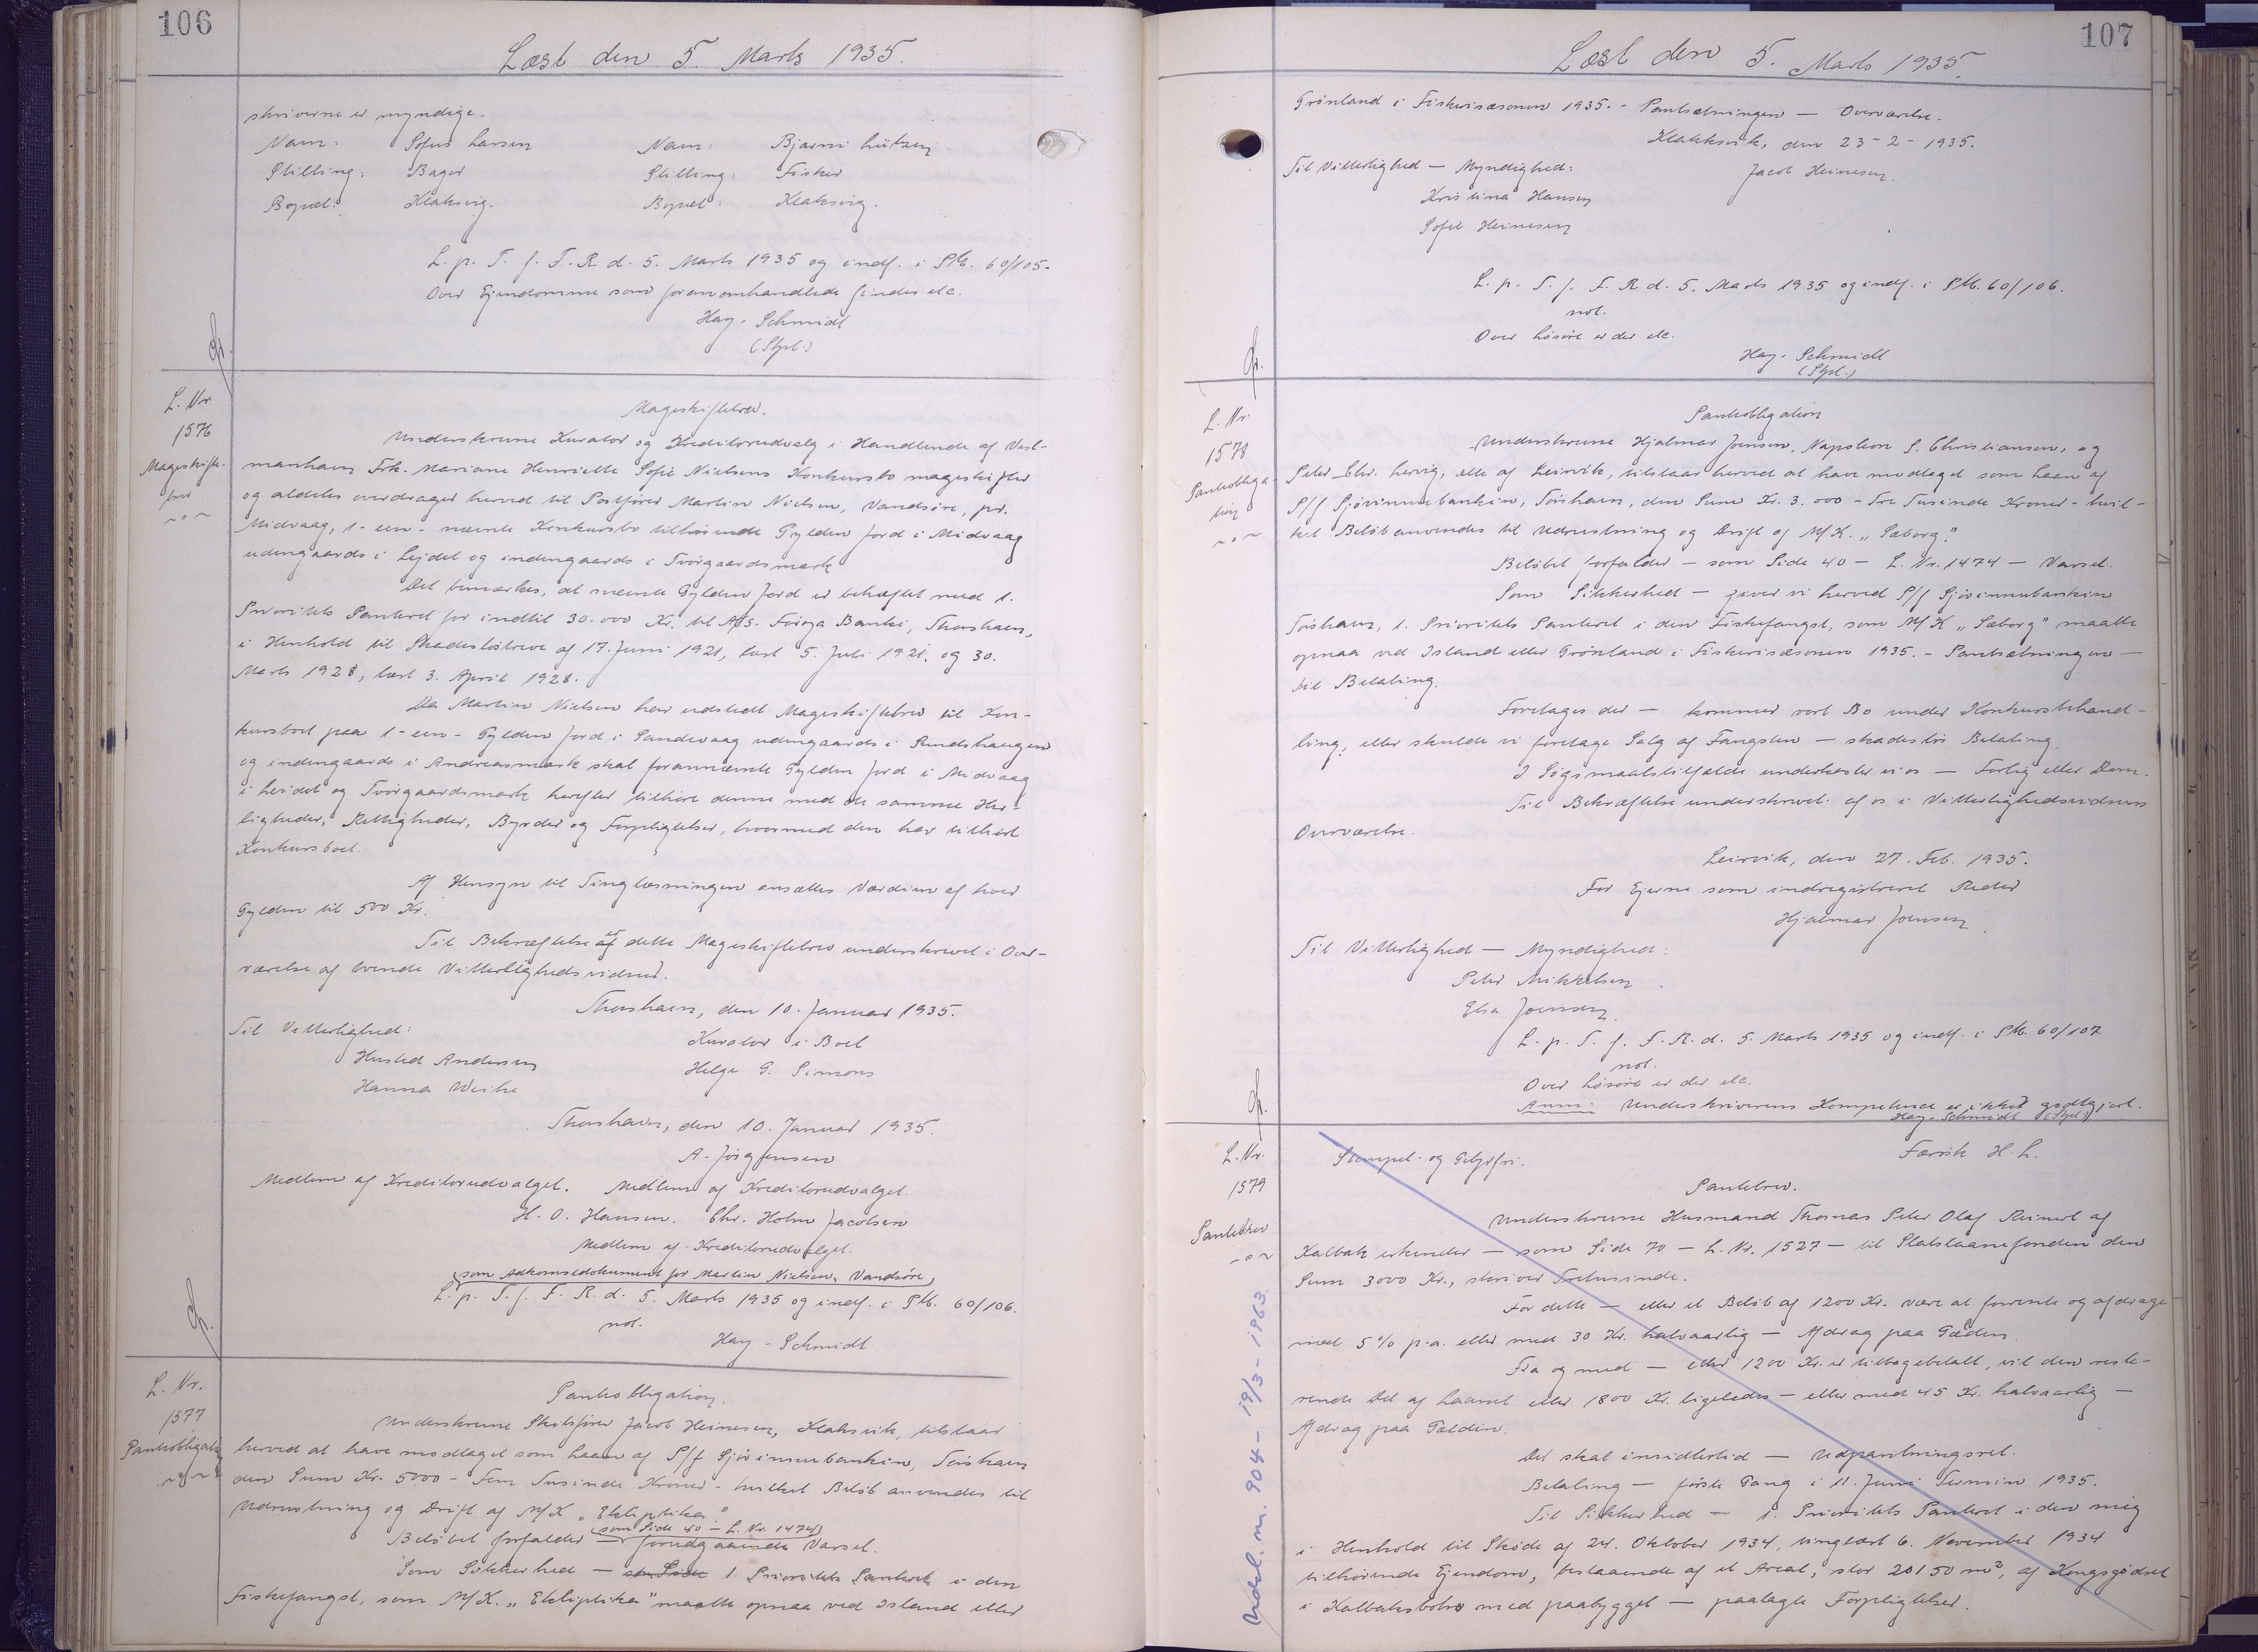 106
Læst den 5. Marts 1935.
skriverne er myndige.
Navn: Sofus Larsen Navn: Bjarni Lützen
Stilling: Bager Stilling: Fisker
Bopæl: Klaksvig. Bopæl: Klaksvig.
L. p. T. f. F. R d. 5. Marts 1935 og indf. i Pk. 60/105.
Over Ejendomme som foranomhandlede findes etc.
Hay-Schmidt
(Stpl.)
L. Nr.
1576
Mageskifte-
brev
Mageskiftebrev.
Underskrevne Kurator og Kreditorudvalg i Handlende af Vest-
manhavn Frk. Mariane Henriette Sofie Nielsens Konkursbo mageskifter
og aldeles overdrager herved til Postfører Martin Nielsen, Vandsöre, pr.
Midvaag, 1-een- nævnte Konkursbo tilhörende Gylden Jord i Midvaag
udengaards i Lejdet og indengaards i Tvörgaardsmark
Det bemærkes, at nævnte Gylden Jord er behæftet med 1.
Prioritets Panteret for indtil 30.000 Kr. til A/S. Föroya Banki, Thorshavn,
i Henhold til Skadeslösbreve af 17. Juni 1921, læst 5. Juli 1921. og 30.
Marts 1928, læst 3. April 1928.
Da Martin Nielsen har udstedt Mageskiftebrev til Kon-
kursboet paa 1-een- Gylden Jord i Sandevaag udengaards i Sundshaugen
og indengaards i Andreasmark skal forannævnte Gylden Jord i Midvaag
i Leidet og Tvörgaardsmark herefter tilhöre denne med de samme Her-
ligheder, Rettigheder, Byrder og Forpligtelser, hvormed den har tilhört
Konkursboet.
Af Hensyn til Tinglæsningen ansættes Værdien af hver
Gylden til 500 Kr.
Til Bekræftelse af dette Mageskiftebrev underskrevet i Over-
værelse af tvende Vitterlighedsvidner.
Thorshavn, den 10. Januar 1935.
Til Vitterlighed: Kurator i Boet
Husted Andersen Helge G. Simons
Hanna Weihe
Thorshavn, den 10. Januar 1935.
A. Jörgensen
Medlem af Kreditorudvalget. Medlem af Kreditorudvalget.
H. O. Hansen. Chr. Holm Jacobsen
Medlem af Kreditorudvalget.
(som Adkomstdokument for Martin Nielsen, Vandsöre)
L. p. T. f. F. R. d. 5. Marts 1935 og indf. i Pk. 60/106.
not.
Hay-Schmidt
L. Nr.
1577
Pantobligation
Pantobligation.
Underskrevne Skibsfører Jacob Heinesen, Klaksvik, tilstaar
herved at have modtaget som Laan af P/f Sjóvinnubankin, Tórshavn
den Sum Kr. 5000 - Fem Tusinde Kroner - hvilket Beløb anvendes til
Udrustning og Drift af M/K „Ekliptika"
(som Side 40 - L. Nr. 1474)
Beløbet forfalder — forudgaaende Varsel.
Som Sikkerhed — som Side 1. Prioritets Panteret i den
Fiskefangst, som M/K. „Ekliptika" maatte opnaa ved Island eller
107
Læst den 5. Marts 1935.
Grönland i Fiskerisæsonen 1935. - Pantsætningen — Overværelse.
Klakksvik, den 23-2-1935.
Til Vitterlighed — Myndighed: Jacob Heinesen.
Kristina Hansen
Sofie Heinesen
L. p. T. f. F. R d. 5. Marts 1935 og indf. i Pk. 60/106.
not.
Over Lösöre er der etc.
Hay-Schmidt
(Stpl.)
L. Nr.
1578
Pantobliga-
tion
Pantobligation
Underskrevne Hjalmar Joensen, Napoleon S. Christiansen, og
Peter Chr. Hervig, alle af Leirvik, tilstaar herved at have modtaget som Laan af
P/f Sjóvinnubankin, Tórshavn, den Sum Kr. 3.000 - Tre Tusinde Kroner - hvil-
ket Beløb anvendes til Udrustning og Drift af M/K. „Sæborg."
Beløbet forfalder — som Side 40 - L. Nr. 1474 — Varsel.
Som Sikkerhed — giver vi herved P/f Sjóvinnubankin
Tórshavn, 1. Prioritets Panteret i den Fiskefangst, som M/K „Sæborg" maatte
opnaa ved Island eller Grönland i Fiskerisæsonen 1935. - Pantsætningen —
til Betaling.
Foretages der — kommer vort Bo under Konkursbehand-
ling, eller skulde vi foretage Salg af Fangsten — skadeslös Betaling.
I Søgsmaalstilfælde underkaster vi os — Forlig eller Dom.
Til Bekræftelse underskrevet af os i Vitterlighedsvidners
Overværelse.
Leirvik, den 27. Feb. 1935.
For Ejerne som indregistreret Reder
Hjalmar Joensen
Til Vitterlighed — Myndighed:
Peter Mikkelsen
Elsa Joensen
L. p. T. f. F. R. d. 5. Marts 1935 og indf. i Pk. 60/107
not.
Over Lösöre er der etc.
Anm: Underskriverens Kompetence er ikke godtgjort.
Hay-Schmidt (Stpl.)
L. Nr.
1579
Pantebrev
Udsl. m. 904 - 19/3 - 1963.
Stempel- og Gebyrfri. Færøsk H. L.
Pantebrev.
Underskrevne Husmand Thomas Peter Olaf Reinert af
Kalbak erkender — som Side 70 - L. Nr. 1527 — til Statslaanefonden den
Sum 3000 Kr., skriver Tretusinde.
For dette — eller et Beløb af 1200 Kr. være at forrente og afdrage
med 5% p.a. eller med 30 Kr. halvaarlig — Afdrag paa Gælden.
Fra og med — eller 1200 Kr. er tilbagebetalt, vil den reste-
rende Del af Laanet eller 1800 Kr. ligeledes — eller med 45 Kr. halvaarlig —
Afdrag paa Gælden.
Det skal imidlertid — Udpantningsret.
Betaling — første Gang i 11. Juni Termin 1935.
Til Sikkerhed — 1. Prioritets Panteret i den mig
i Henhold til Skøde af 24. Oktober 1934, tinglæst 6. November 1934
tilhørende Ejendom, bestaaende af et Areal, stor 20150 m², af Kongsgodset
i Kalbaksbotn med paabygget — paalagte Forpligtelser.